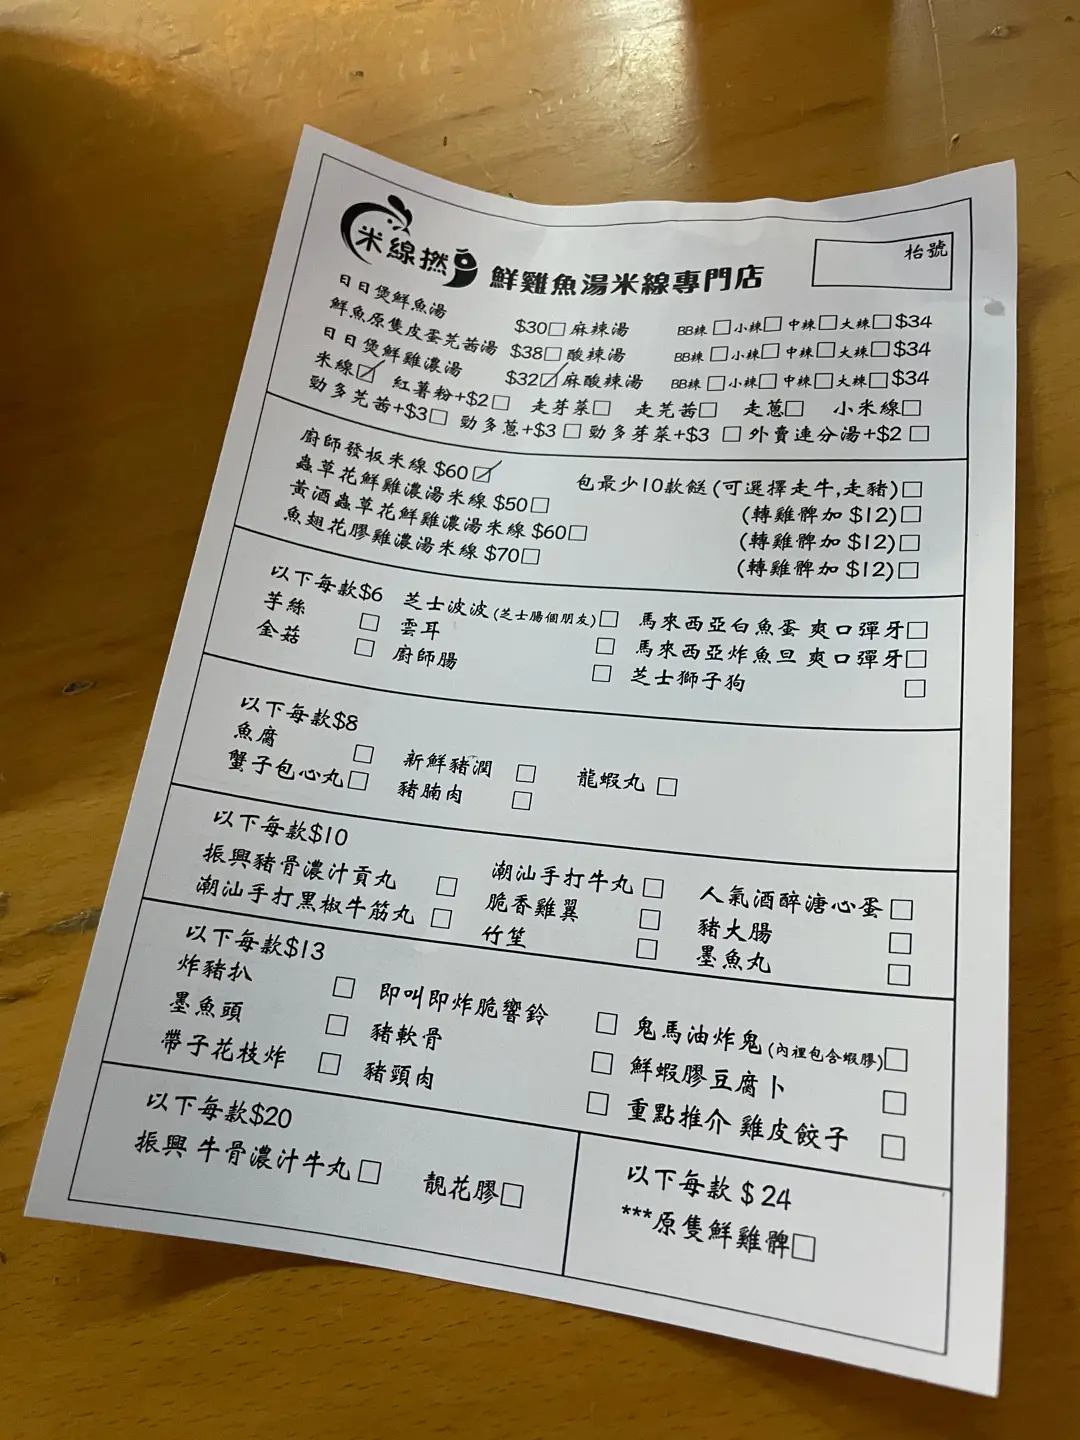 米線撚
鮮雞魚湯米線專門店
枱號
日日煲鮮魚湯 $30 麻辣湯 BB辣 小辣 中辣 大辣 $34
鮮魚原隻皮蛋芫茜湯 $38 酸辣湯 BB辣 小辣 中辣 大辣 $34
日日煲鮮雞濃湯 $32 麻酸辣湯 BB辣 小辣 中辣 大辣 $34
米線 紅薯粉+$2 走芽菜 走芫茜 走蔥 小米線
勁多芫茜+$3 勁多蔥+$3 勁多芽菜+$3 外賣連分湯+$2
廚師發板米線 $60 包最少10款餸(可選擇走牛,走豬)
蟲草花鮮雞濃湯米線 $50 (轉雞髀加 $12)
黃酒蟲草花鮮雞濃湯米線 $60 (轉雞髀加 $12)
魚翅花膠雞濃湯米線 $70 (轉雞髀加 $12)
以下每款$6 芝士波波(芝士腸個朋友) 馬來西亞白魚蛋 爽口彈牙
芋絲 雲耳 馬來西亞炸魚旦 爽口彈牙
金菇 廚師腸 芝士獅子狗
以下每款$8
魚腐 新鮮豬潤 龍蝦丸
蟹子包心丸 豬腩肉
以下每款$10
振興豬骨濃汁貢丸 潮汕手打牛丸 人氣酒醉溏心蛋
潮汕手打黑椒牛筋丸 脆香雞翼 豬大腸
竹笙 墨魚丸
以下每款$13
炸豬扒 即叫即炸脆響鈴 鬼馬油炸鬼(內裡包含蝦膠)
墨魚頭 豬軟骨 鮮蝦膠豆腐卜
帶子花枝炸 豬頸肉 重點推介 雞皮餃子
以下每款$20
振興 牛骨濃汁牛丸 靚花膠
以下每款 $24
***原隻鮮雞髀